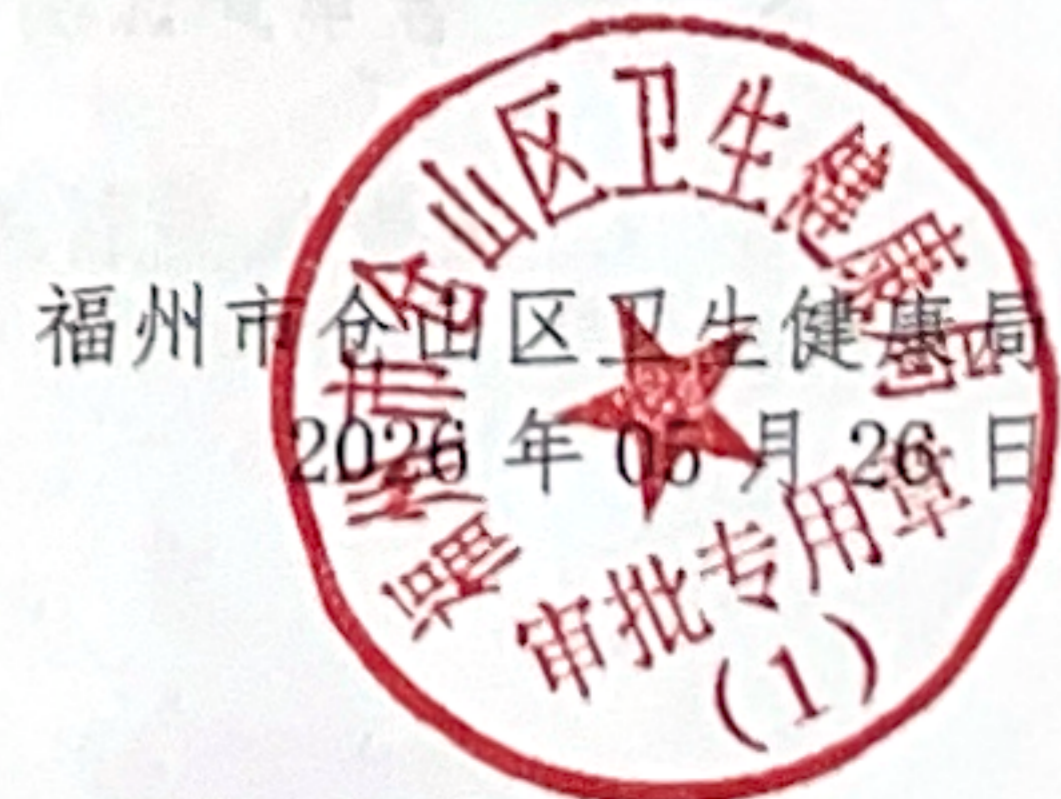 福州市仓山区卫生健康局
2026 年 05 月 26 日
福州市仓山区卫生健康局
审批专用章
(1)